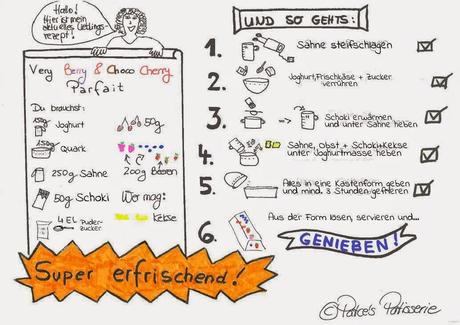 Hallo!
Hier ist mein
aktuelles Lieblings-
rezept!
Very Berry & Choco Cherry
Parfait
Du brauchst:
Joghurt
50g
Quark
250g Sahne
200g Beeren
50g Schoki
Wer mag:
4 EL Puder-
zucker
Kekse
Super erfrischend!
UND SO GEHTS:
1. Sahne steifschlagen
2. Joghurt, Frischkäse + Zucker
verrühren
3. Schoki erwärmen
und unter Sahne heben
4. Sahne, Obst + Schoki+Kekse
unter Joghurtmasse heben
5. Alles in eine Kastenform geben
und mind. 3 Stunden gefrieren
6. Aus der Form lösen, servieren und...
GENIEßEN!
© Patce's Patisserie